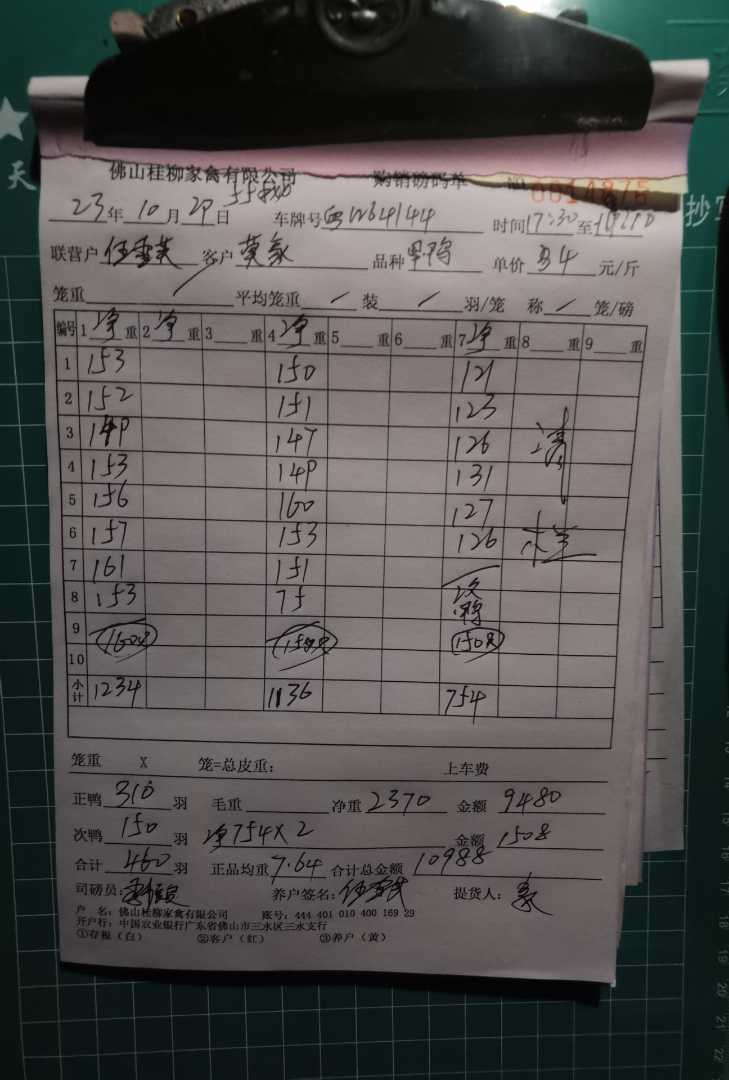 佛山桂柳家禽有限公司 购销磅码单 NO 0014875
23年10月29日 车牌号粤W64144 时间17:30至
联营户 客户莫家 品种 单价 4 元/斤
笼重 平均笼重 装 羽/笼 称 笼/磅
编号 1净重 2净重 3重 4净重 5重 6重 7净重 8重 9重
1 153 150 121
2 152 151 123 清
3 149 147 126
4 153 149 131
5 156 160 127
6 157 153 126
7 161 151
8 153 75 次鸭
9 160只 150只 150只
10
小计 1234 1136 754
笼重 X 笼=总皮重: 上车费
正鸭310羽 毛重 净重2370 金额9480
次鸭150羽 净754X2 金额1508
合计460羽 正品均重7.64 合计总金额10988
司磅员: 养户签名: 提货人:
户 名: 佛山桂柳家禽有限公司 账号: 444 401 010 400 169 29
开户行: 中国农业银行广东省佛山市三水区三水支行
①存根(白) ②客户(红) ③养户(黄)
天
抄写
12
13
14
15
16
17
18
19
20
21
22